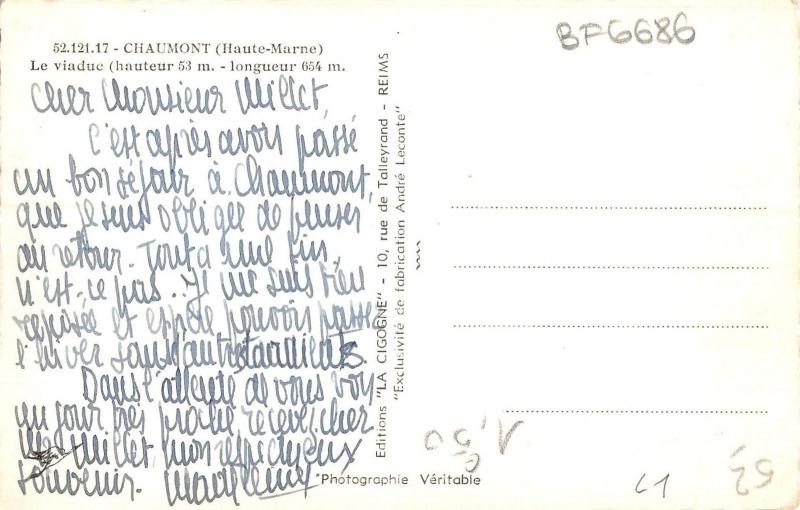 BF6686
52.121.17 - CHAUMONT (Haute-Marne)
Le viaduc (hauteur 53 m. - longueur 654 m.
Cher Monsieur Millet,
C'est après avoir passé
un bon séjour à Chaumont,
que je suis obligée de penser
au retour. Tout a une fin,
n'est-ce pas.. Je me suis bien
reposée et espère pouvoir passer
l'hiver sans autres
Dans l'attente de vous voir
un jour très proche recevez cher
Mr Millet, mon respectueux
souvenir. Madeleine
Editions "LA CIGOGNE" - 10, rue de Talleyrand - REIMS
"Exclusivité de fabrication André Leconte"
"Photographie Véritable
1,50
61
52